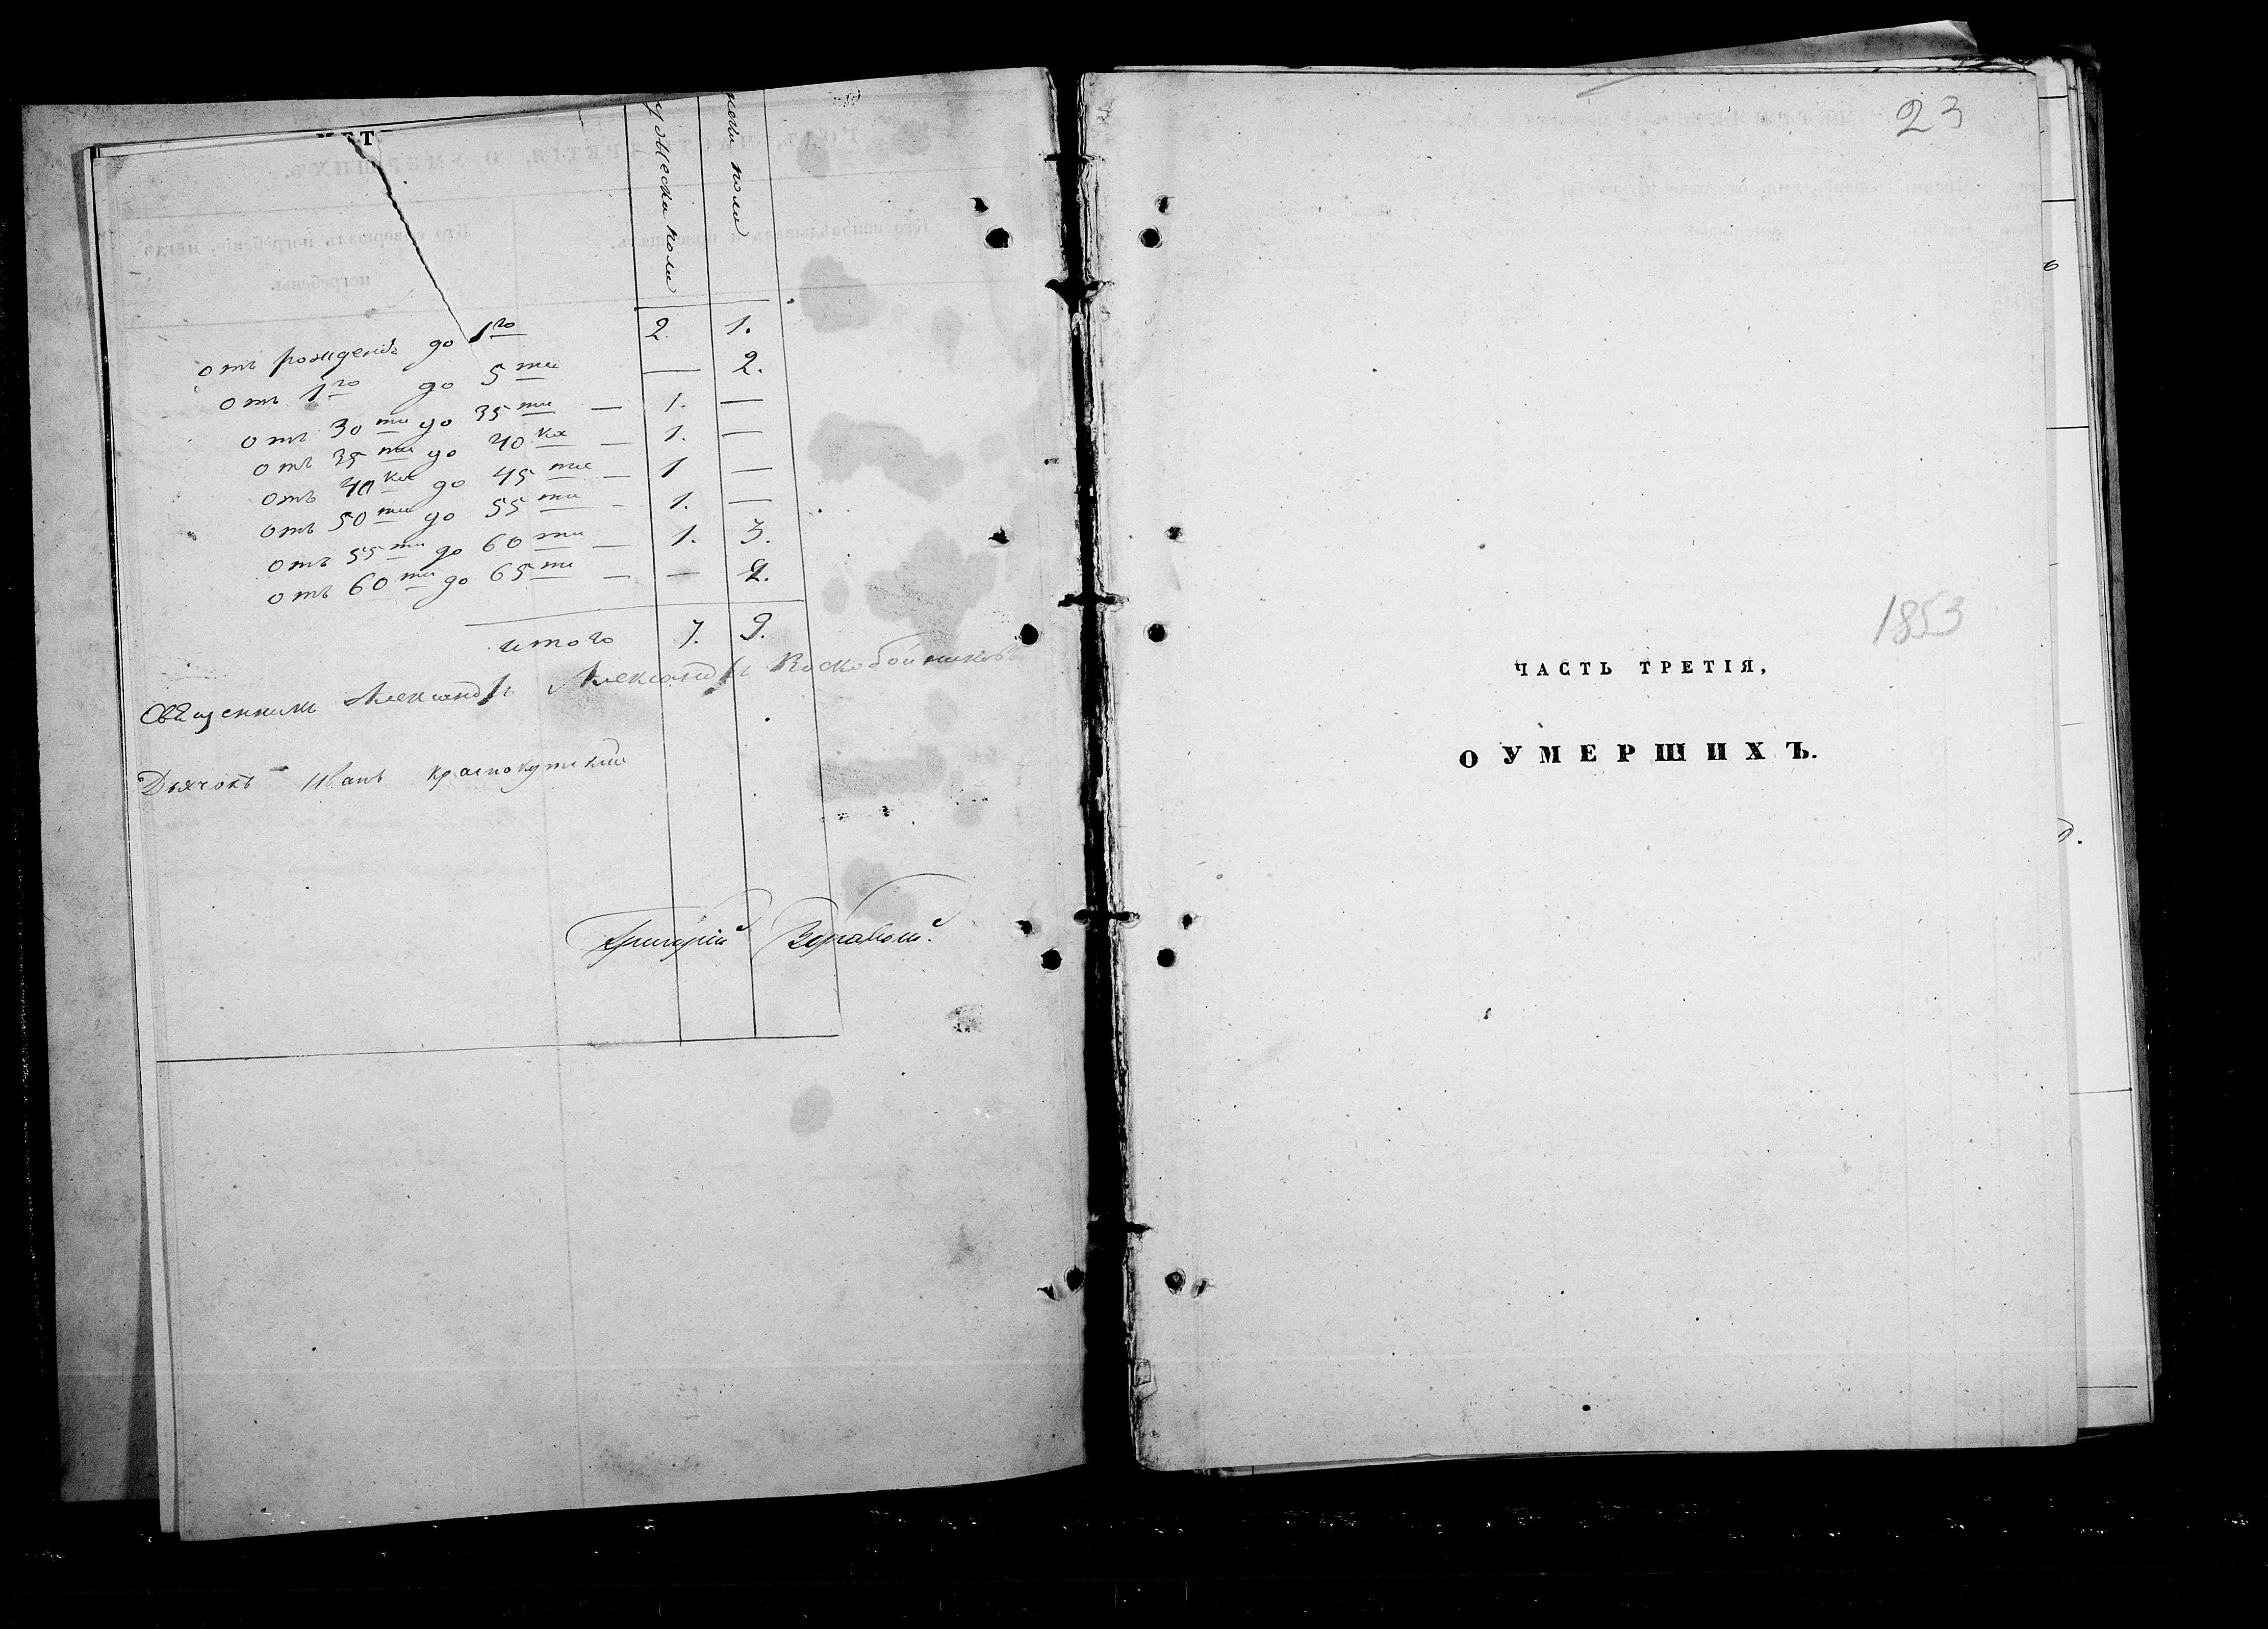 Мужеска пола
пола
отъ рожденія до 1го 2 1.
отъ 1го до 5ти — 2.
отъ 30ти до 35ти — 1. —
отъ 35ти до 40ка — 1. —
отъ 40ка до 45ти — 1 —
отъ 50ти до 55ти — 1. —
отъ 55ти до 60ти — 1. 3.
отъ 60ти до 65ти — — 2.
итого 7. 9.
Священникъ Александръ Александръ Воскобойниковъ
Дьячокъ Иванъ Краснокутскій
Григорій
23
1853
ЧАСТЬ ТРЕТІЯ,
О УМЕРШИХЪ.